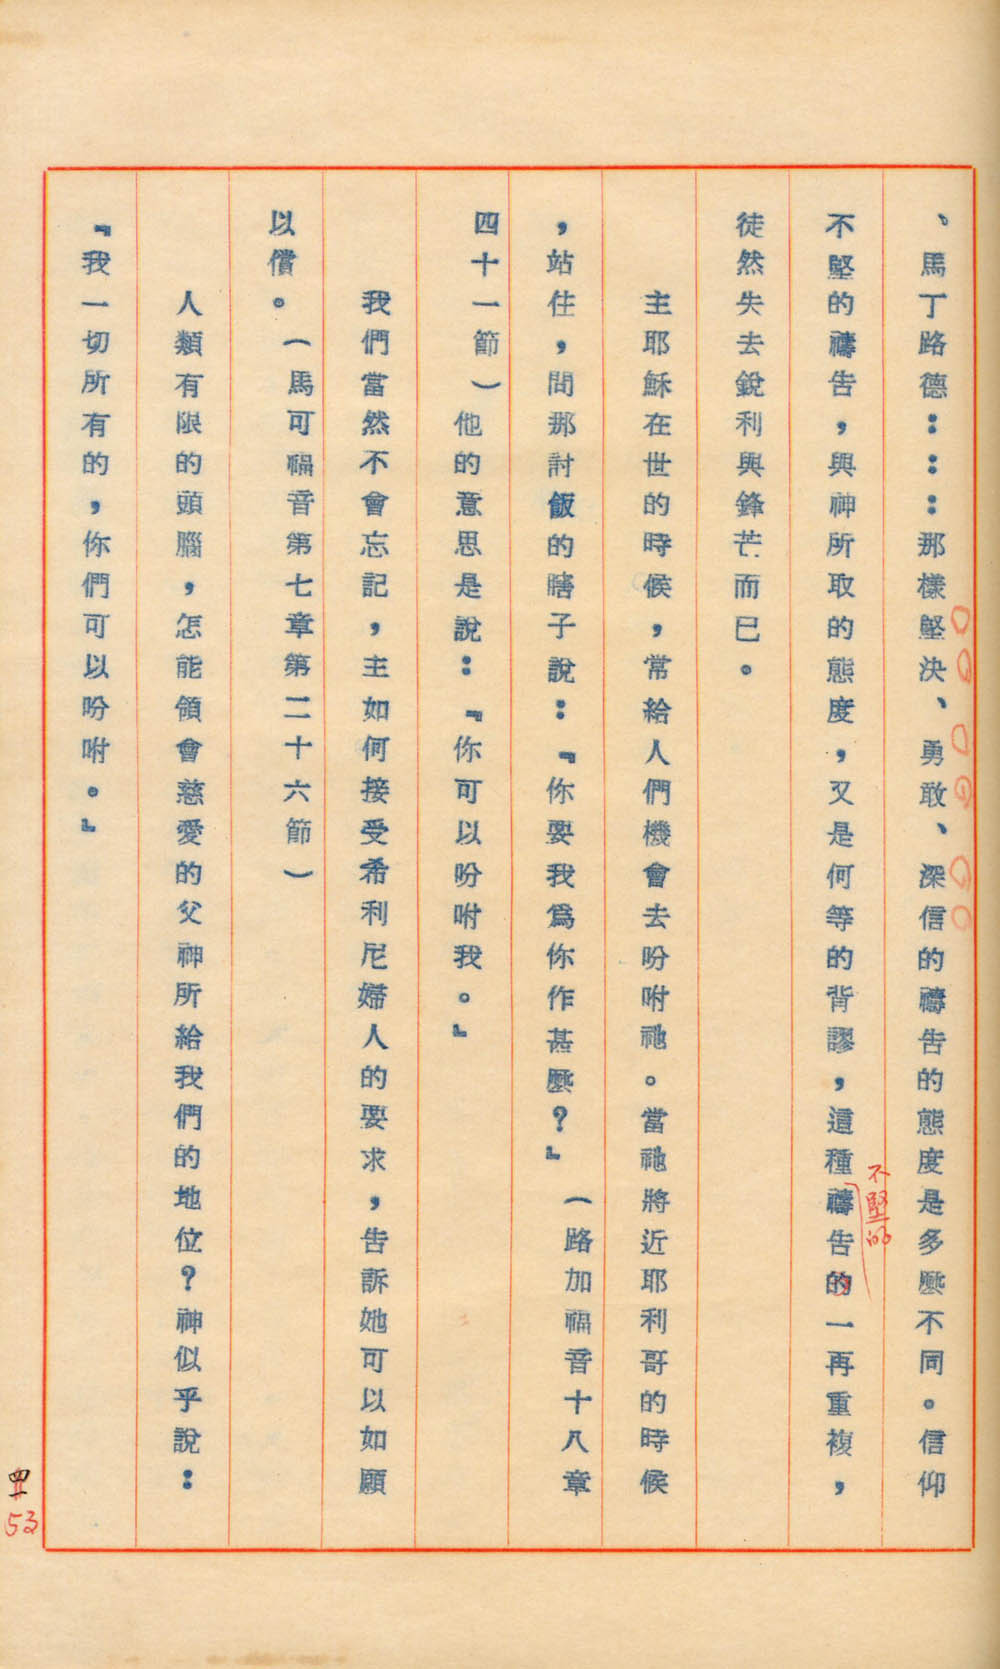 、馬丁路德：：：那樣堅決、勇敢、深信的禱告的態度是多麼不同。信仰
不堅的禱告，與神所取的態度，又是何等的背謬，這種禱告的一再重複，
不堅的
徒然失去銳利與鋒芒而已。
主耶穌在世的時候，常給人們機會去吩咐祂。當祂將近耶利哥的時候
，站住，問那討飯的瞎子說：『你要我爲你作甚麼？』（路加福音十八章
四十一節）他的意思是說：『你可以吩咐我。』
我們當然不會忘記，主如何接受希利尼婦人的要求，告訴她可以如願
以償。（馬可福音第七章第二十六節）
人類有限的頭腦，怎能領會慈愛的父神所給我們的地位？神似乎說：
『我一切所有的，你們可以吩咐。』
53